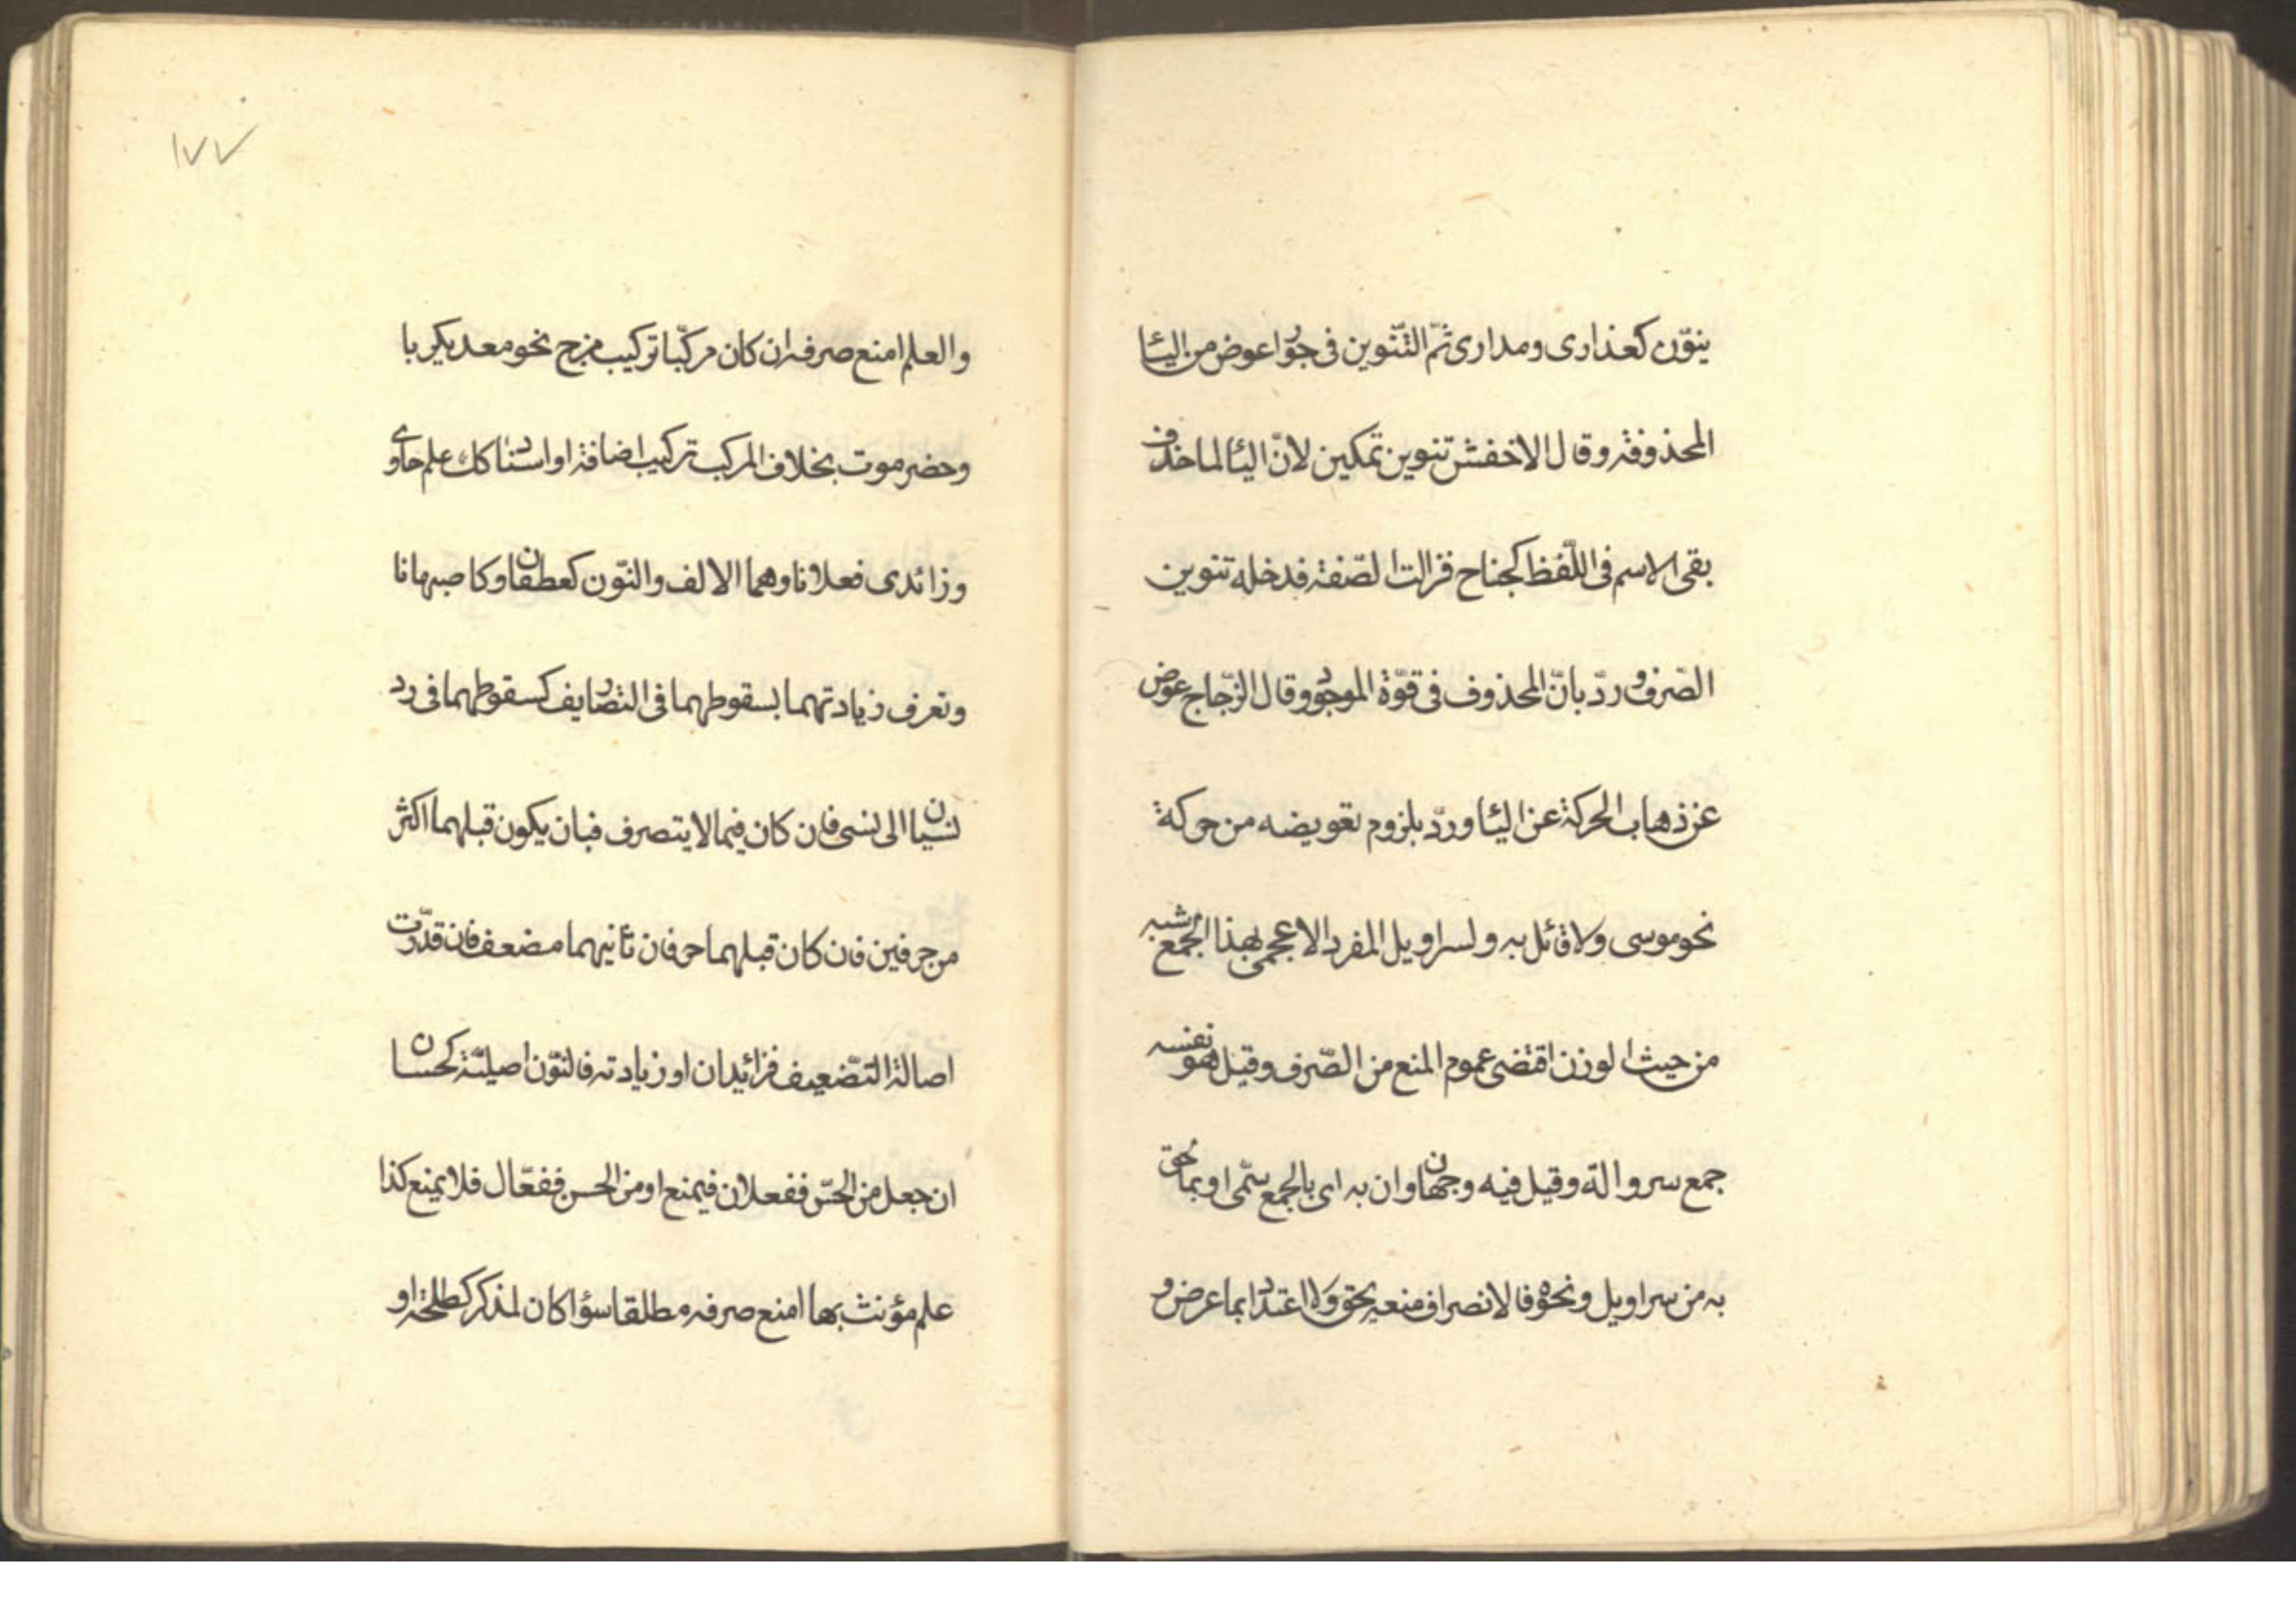 ينوّن كعذارى ومدارى ثمّ التّنوين فى جوار عوض من الئا
المحذوفة وقال الاخفش تنوين تمكين لانّ الئا لما حذف
بقى الاسم فى اللّفظ كجناح فزالت الصّفة فدخله تنوين
الصّرف وردّ بانّ المحذوف فى قوّة الموجود وقال الزّجاج عوض
عن ذهاب الحركة عن الئا وردّ بلزوم تعويضه من حركة
نحو موسى ولا قائل به ولسراويل المفرد الاعجمى بهذا الجمع شبه
من حيث الوزن اقتضى عموم المنع من الصّرف وقيل هو نفسه
جمع سروالة وقيل فيه وجهان وان به اى بالجمع سمّى او بما لحق
به من سراويل ونحوه فالانصراف منعه يحق ولا اعتداد بما عرض و
١٧٧
والعلم امنع صرفه ان كان مركّبا تركيب مزج نحو معديكربا
وحضرموت بخلاف المركب تركيب اضافة او اسناد كك علم حاوى
وزائدى فعلانا وهما الالف والنّون كغطفان وكاصبهانا
وتعرف زيادتهما بسقوطهما فى التصاريف كسقوطهما فى رد
نسيان الى نسى فان كان فيما لا يتصرف فبان يكون قبلهما اكثر
من حرفين فان كان قبلهما حرفان ثانيهما مضعف فان قدّرت
اصالة التّضعيف فزائيدان او زيادته فالنّون اصيلّة كحسان
ان جعل من الحسّ ففعلان فيمنع او من الحسن ففعّال فلا يمنع كذا
علم مؤنث بها امنع صرفه مطلقا سؤا كان لمذكر كطلحة او